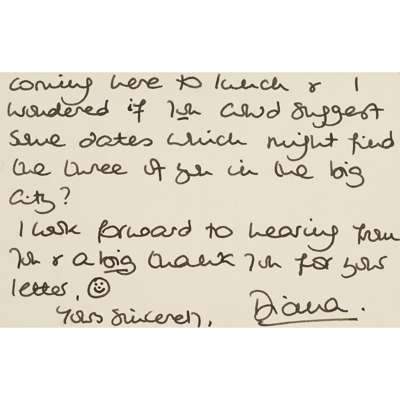 coming here to lunch & I
wondered if you could suggest
some dates which might find
the three of you in the big
city?
I look forward to hearing from
you & a big thank you for your
letter. ☺
Yours sincerely,
Diana.